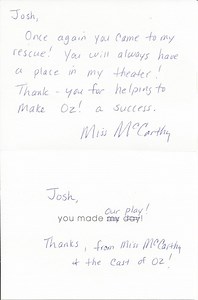 Josh,
Once again you came to my
rescue! You will always have
a place in my theater!
Thank-you for helping to
make Oz! a success.
Miss McCarthy
Josh,
our play!
you made my day!
Thanks, from Miss McCarthy
& the cast of Oz!